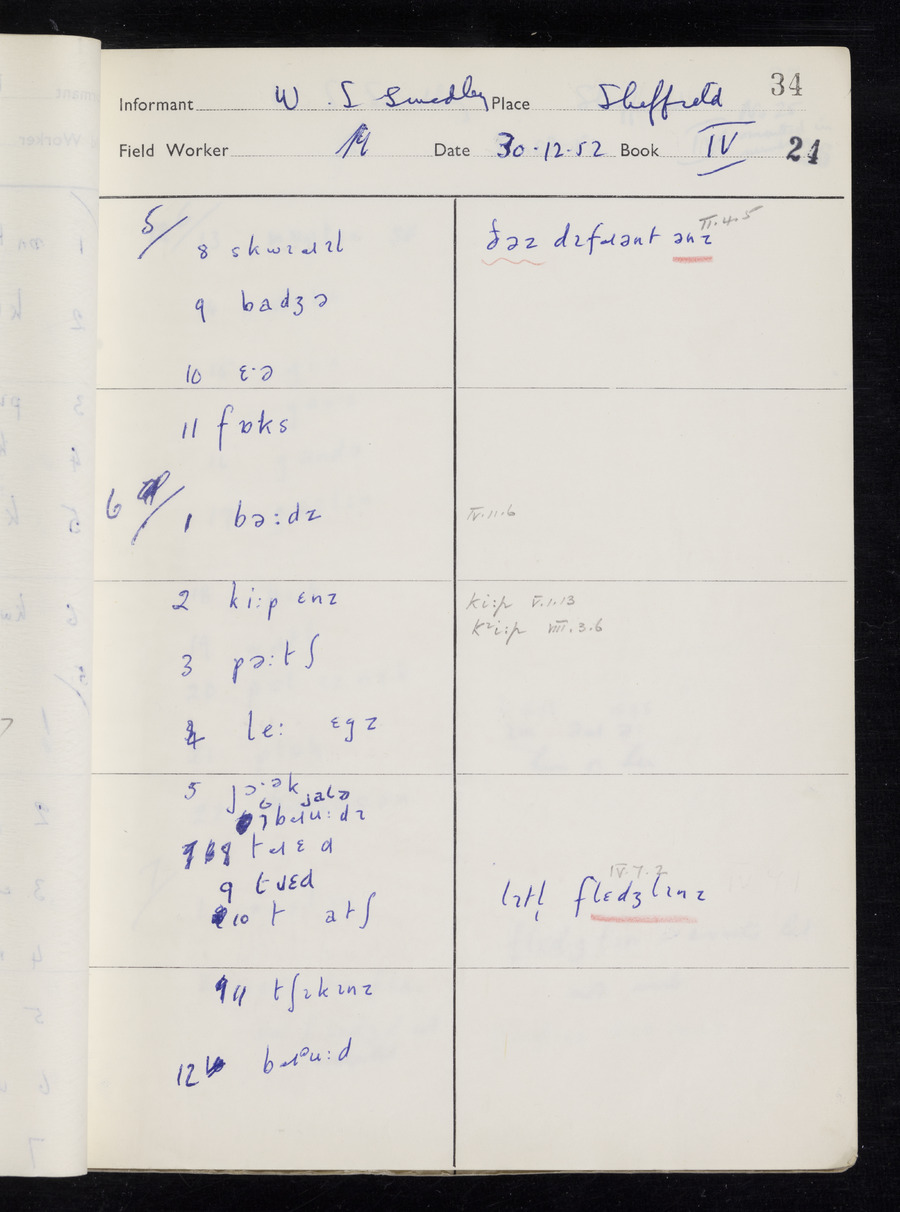 34
Informant W. S Smedley Place Sheffield
Field Worker Date 30·12·52 Book IV 21
5/
8 skwɪɹɪl
ðəz dɪfɹənt ənz
II.4.5
9 badʒə
10 ɛ·ə
11 fɒks
6/
1 bə:dz
IV.11.6
2 ki:p ɛnz
ki:p V.1.13
kᶻi:p VIII.3.6
3 pə:tʃ
4 le: ɛgz
5 jɔ·ək
6 jalə
7 bɹu:dɪ
8 tɹɛd
9 tɹɛd
lɪtl̩ flɛdʒlɪnz
IV.7.2
10 t atʃ
11 tʃɪkɪnz
12 bɹᵊu:d